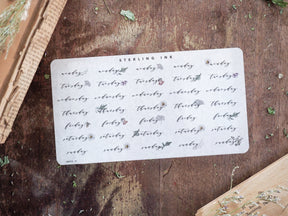 STERLING INK
monday monday monday monday
tuesday tuesday tuesday tuesday
wednesday wednesday wednesday wednesday
thursday thursday thursday thursday
friday friday friday friday
saturday saturday saturday saturday
sunday sunday sunday sunday